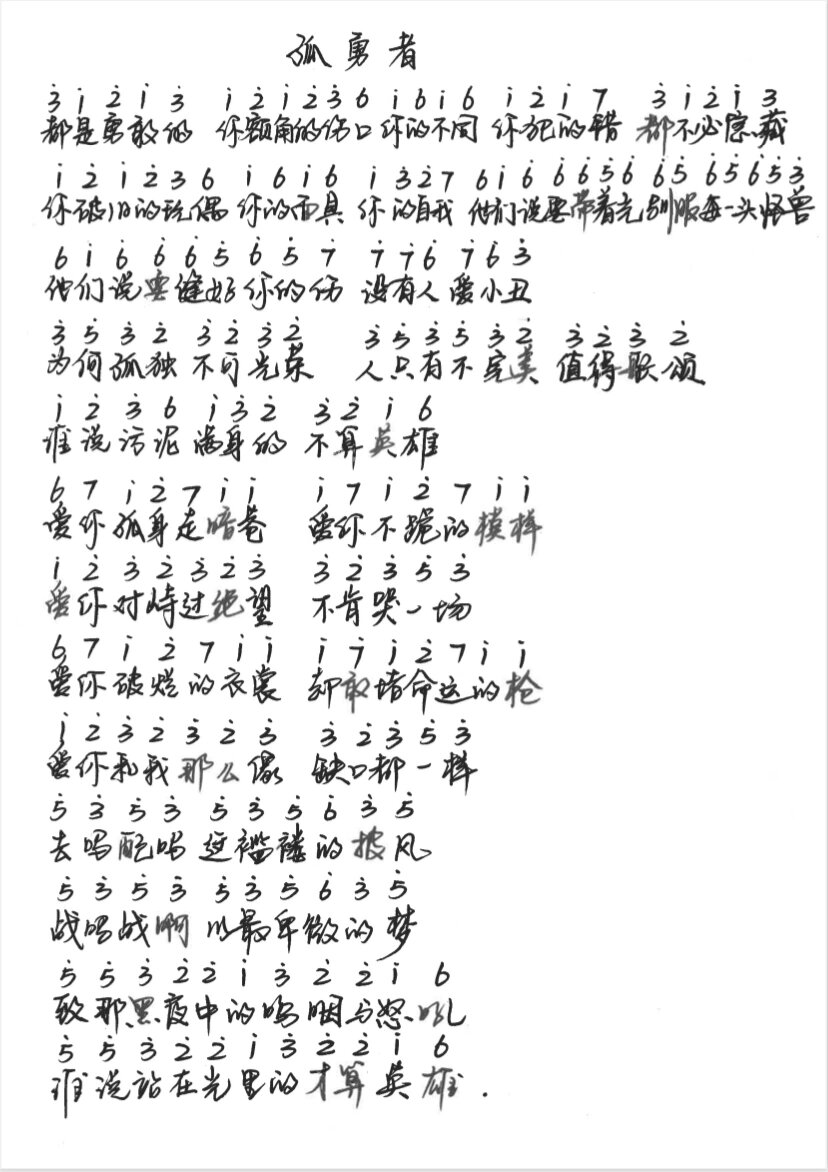 孤勇者
3̇ 1̇ 2̇ 1̇ 3̇ 1̇ 2̇ 1̇ 2̇ 3̇ 6 1̇ 6 1̇ 6 1̇ 2̇ 1̇ 7 3̇ 1̇ 2̇ 1̇ 3̇
都是勇敢的 你额角的伤口 你的不同 你犯的错 都不必隐藏
1̇ 2̇ 1̇ 2̇ 3̇ 6 1̇ 6 1̇ 6 1̇ 3̇ 2̇ 7 6 1̇ 6̇ 6̇ 6̇ 5̇ 6̇ 6̇ 5̇ 6̇ 5̇ 6̇ 5̇ 3̇
你破旧的玩偶 你的面具 你的自我 他们说要带着光 驯服每一头怪兽
6 1̇ 6̇ 6̇ 6̇ 5̇ 6̇ 5̇ 7̇ 7̇ 7̇ 6̇ 7̇ 6̇ 3̇
他们说要缝好你的伤 没有人爱小丑
3̇ 5̇ 3̇ 2̇ 3̇ 2̇ 3̇ 2̇ 3̇ 5̇ 3̇ 5̇ 3̇ 2̇ 3̇ 2̇ 3̇ 2̇
为何孤独 不可光荣 人只有不完美 值得歌颂
1̇ 2̇ 3̇ 6 1̇ 3̇ 2̇ 3̇ 2̇ 1̇ 6
谁说污泥满身的 不算英雄
6 7 1̇ 2̇ 7 1̇ 1̇ 1̇ 7 1̇ 2̇ 7 1̇ 1̇
爱你孤身走暗巷 爱你不跪的模样
1̇ 2̇ 3̇ 2̇ 3̇ 2̇ 3̇ 3̇ 2̇ 3̇ 5̇ 3̇
爱你对峙过绝望 不肯哭一场
6 7 1̇ 2̇ 7 1̇ 1̇ 1̇ 7 1̇ 2̇ 7 1̇ 1̇
爱你破烂的衣裳 却敢堵命运的枪
1̇ 2̇ 3̇ 2̇ 3̇ 2̇ 3̇ 3̇ 2̇ 3̇ 5̇ 3̇
爱你和我那么像 缺口都一样
5̇ 3̇ 5̇ 3̇ 5̇ 3̇ 5̇ 6̇ 3̇ 5̇
去吗配吗 这褴褛的披风
5̇ 3̇ 5̇ 3̇ 5̇ 3̇ 5̇ 6̇ 3̇ 5̇
战吗战啊 以最卑微的梦
5̇ 5̇ 3̇ 2̇ 2̇ 1̇ 3̇ 2̇ 2̇ 1̇ 6
致那黑夜中的呜咽与怒吼
5̇ 5̇ 3̇ 2̇ 2̇ 1̇ 3̇ 2̇ 2̇ 1̇ 6
谁说站在光里的才算英雄.